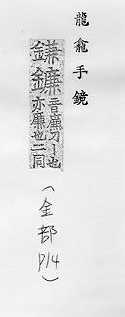 龍龕手鏡
鎌鐮音廉刀丨也
亦廉也二同
(金部 P14)